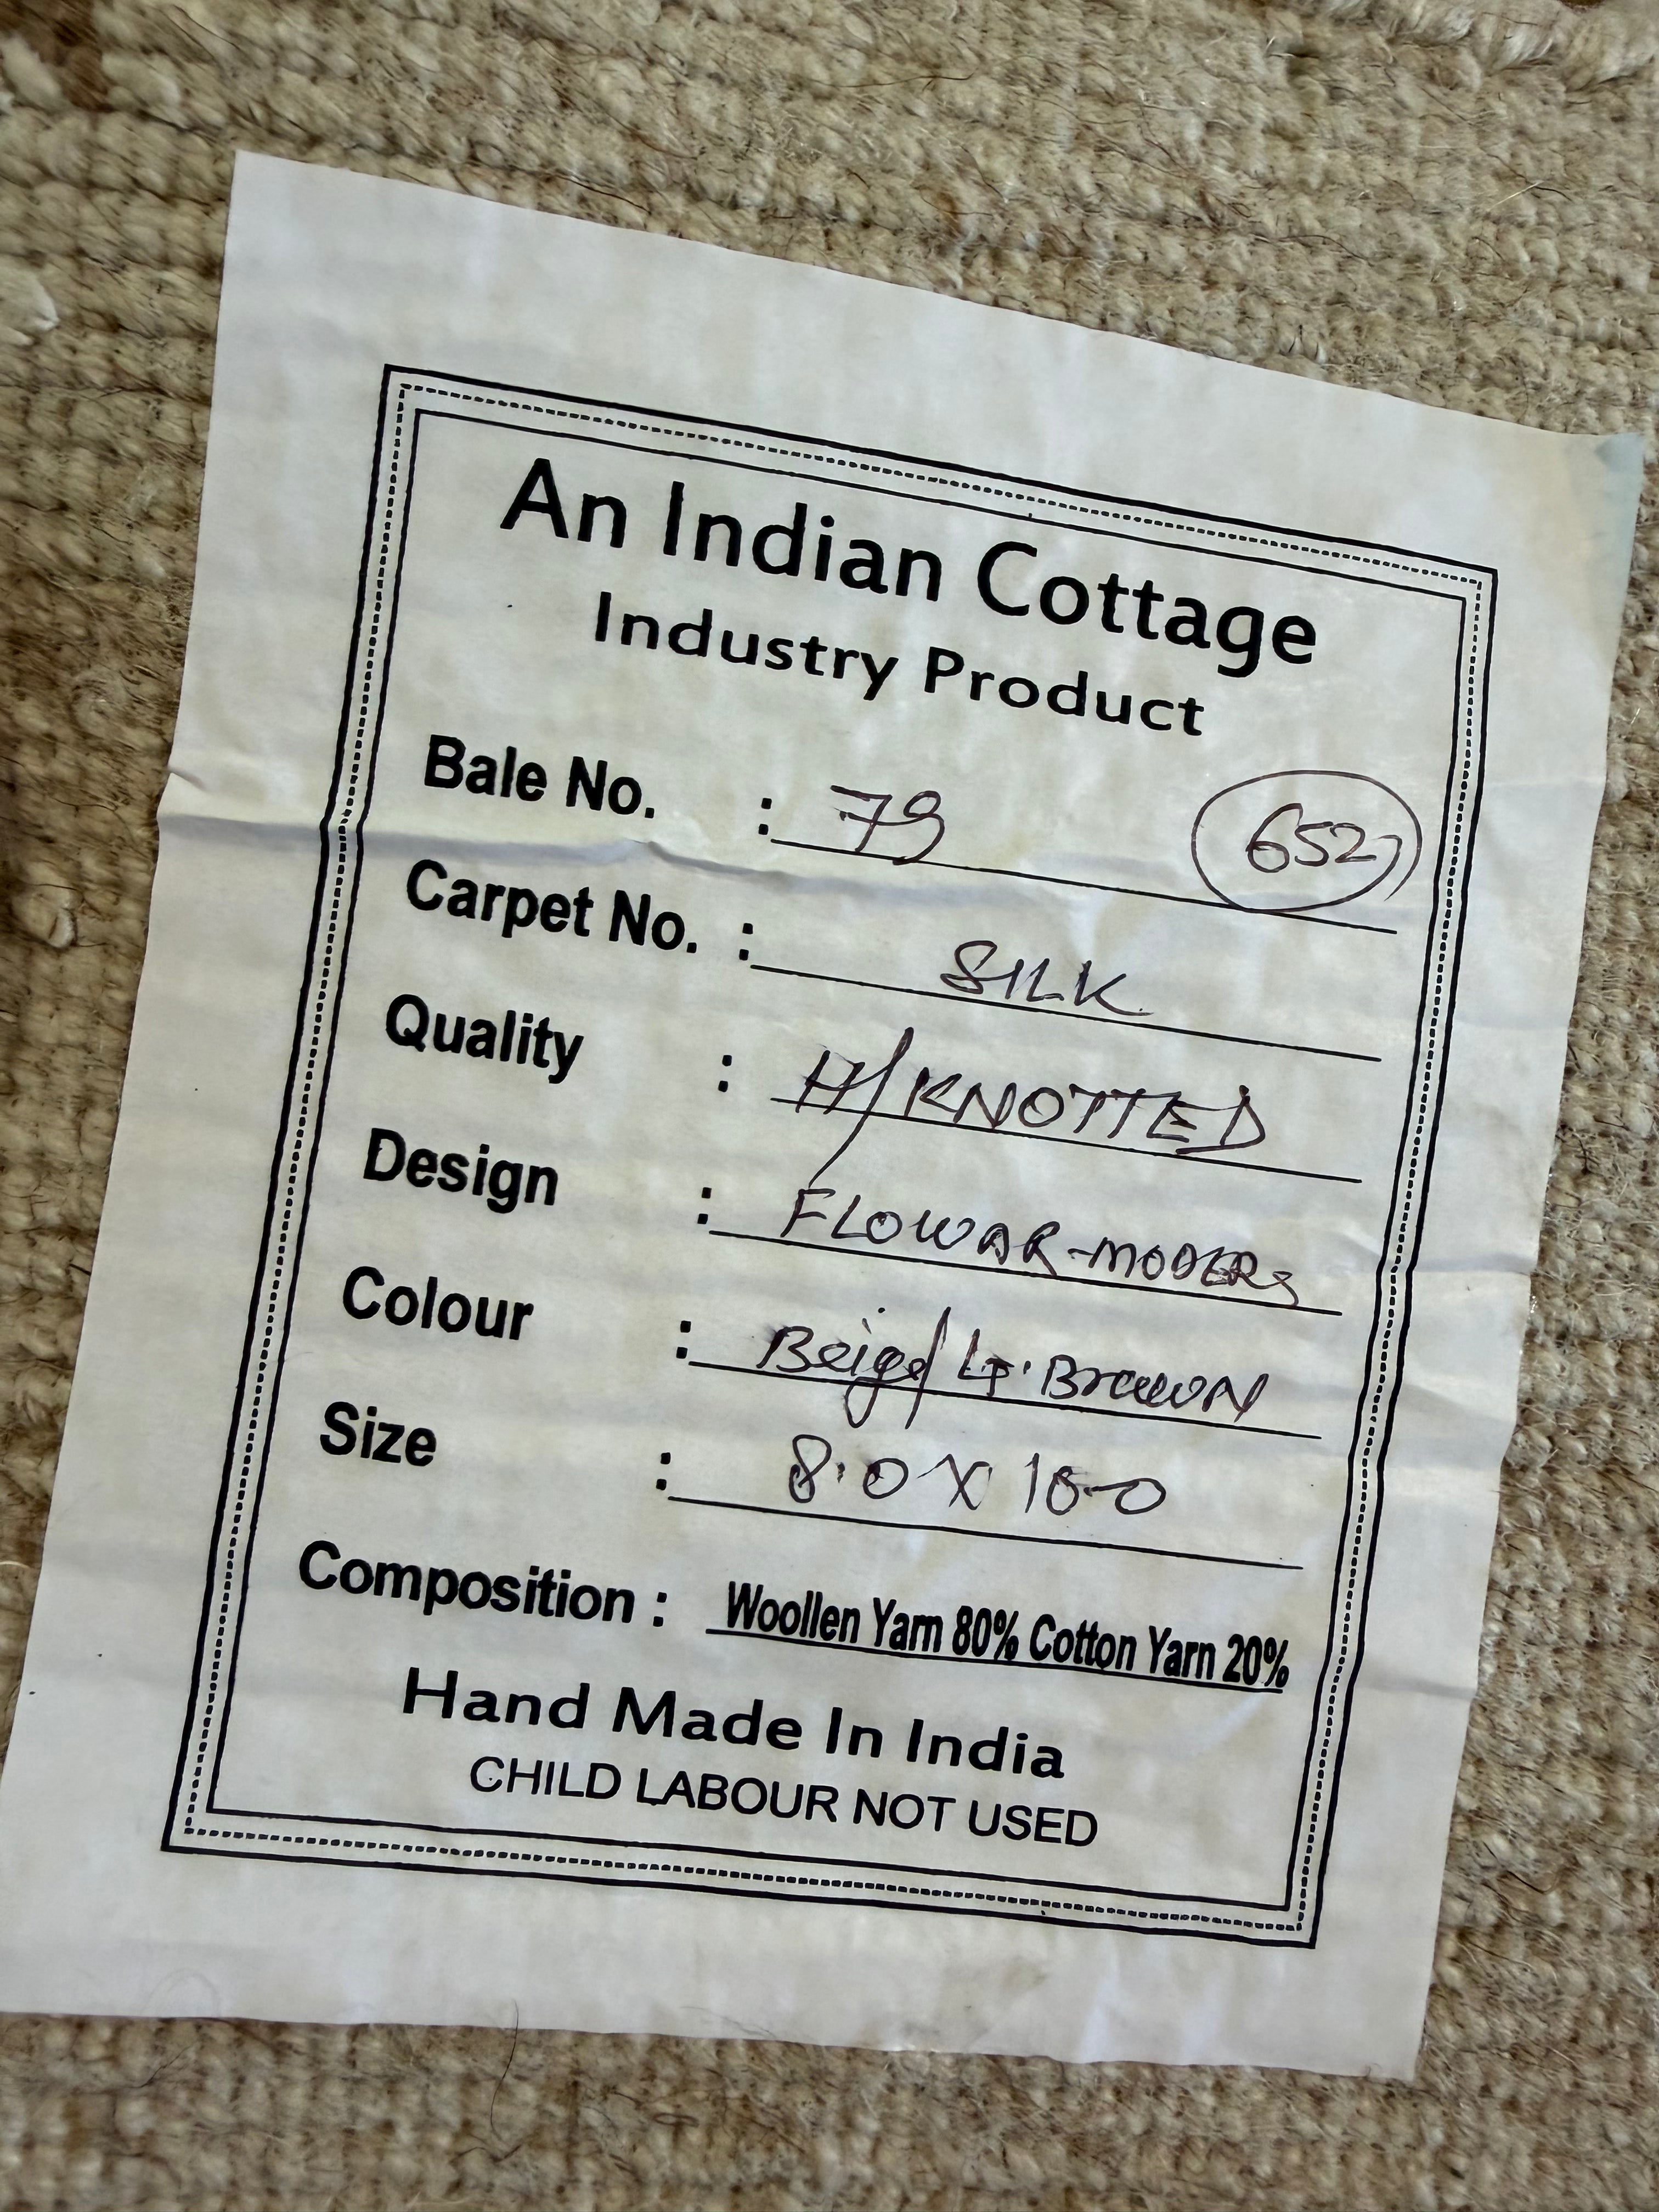 An Indian Cottage
Industry Product
Bale No. : 79 652
Carpet No. : SILK
Quality : H/KNOTTED
Design : FLOWAR-MODERN
Colour : Beige/LT. Brown
Size : 8.0 X 10-0
Composition : Woollen Yarn 80% Cotton Yarn 20%
Hand Made In India
CHILD LABOUR NOT USED